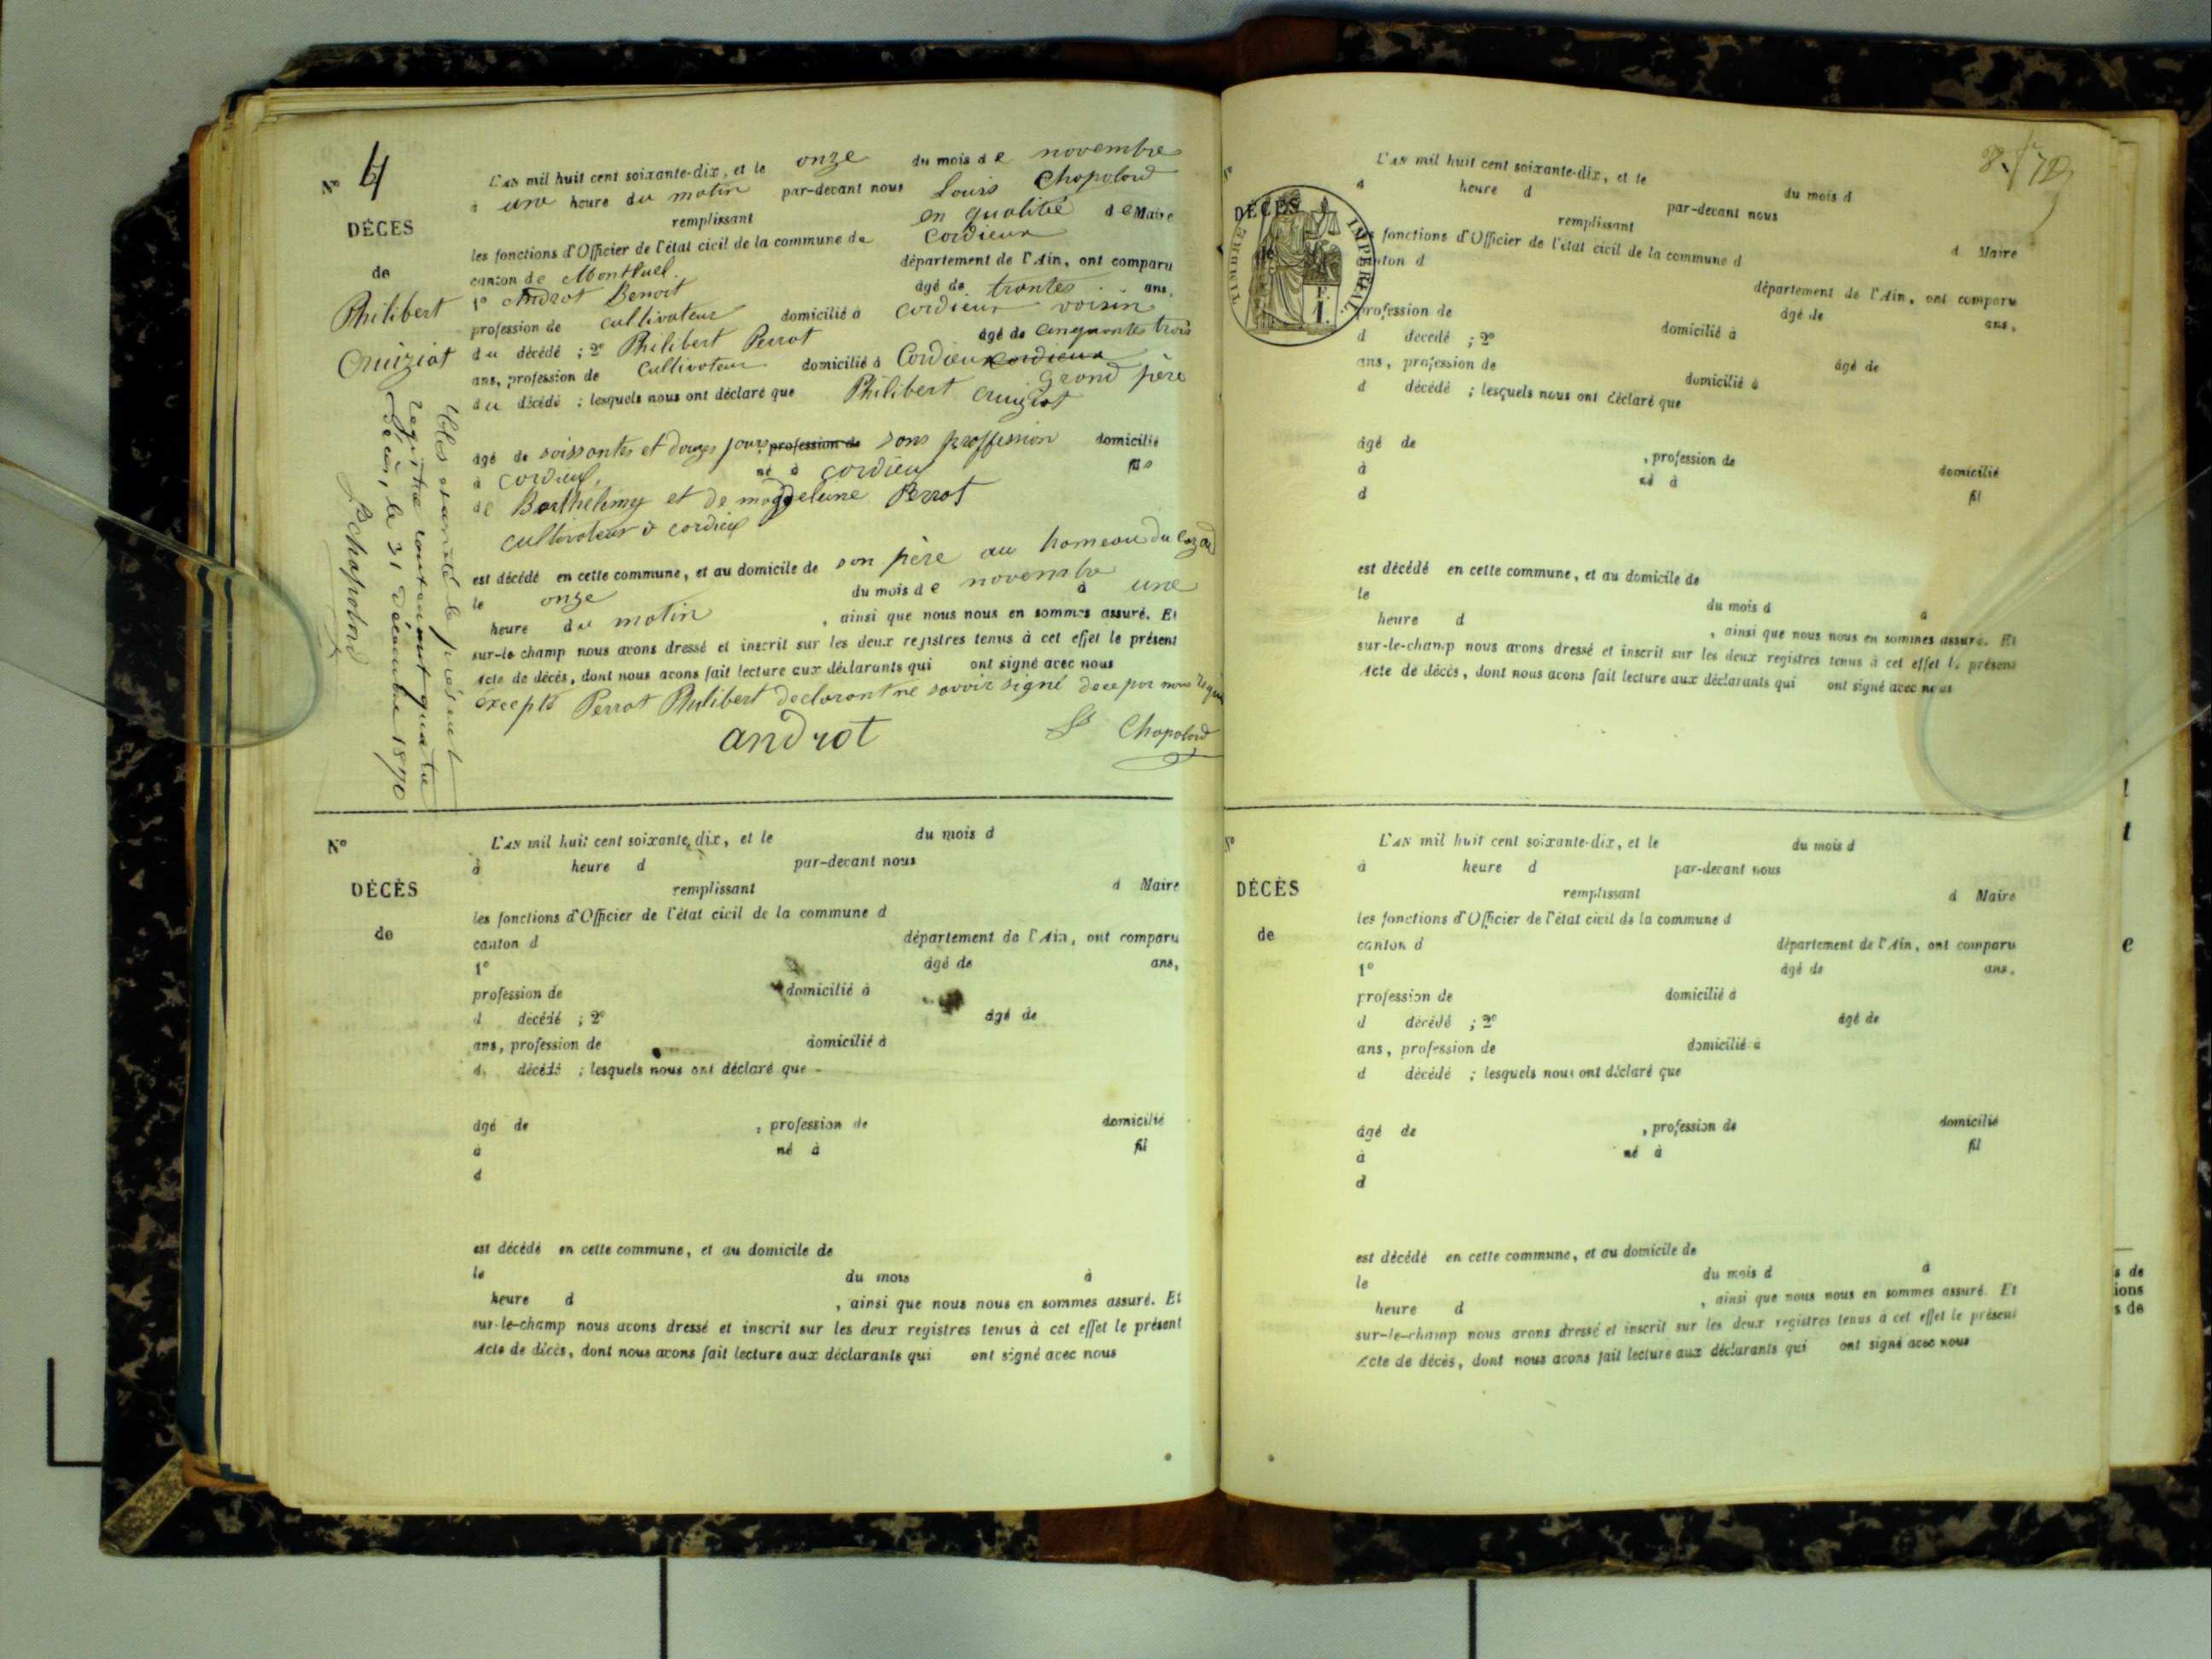 N° 4
DÉCES
de
Philibert
Cruiziat
L'AN mil huit cent soixante-dix, et le onze du mois de novembre
à une heure du matin par-devant nous Louis Chapolard
remplissant en qualité de Maire
les fonctions d'Officier de l'état civil de la commune de Cordieux
canton de Montluel. département de l'Ain, ont comparu
1° Androt Benoit âgé de trantes ans,
profession de cultivateur domicilié à Cordieux voisin
du décédé ; 2° Philibert Perrot âgé de cinquantes trois
ans, profession de Cultivateur domicilié à Cordieux cordieux
du décédé ; lesquels nous ont déclaré que Philibert Cruiziat Grand père
âgé de soissantes et douges jours, profession de sans proffession domicilié
à Cordieux, né à cordieux fils
de Barthelemy et de magdeleine Perrot
cultivateur à cordieux
est décédé en cette commune, et au domicile de son père au hameau du
le onze du mois de novembre à une
heure du matin , ainsi que nous nous en sommes assuré. Et
sur-le champ nous avons dressé et inscrit sur les deux registres tenus à cet effet le présent
Acte de décès, dont nous avons fait lecture aux déclarants qui ont signé avec nous
excepté Perrot Philibert declarant ne savoir signé de ce par nous requis
androt
Ls Chapolard
Clos et arrêté le présent
registre contenant quatre
Décès, le 31 décembre 1870
Chapolard
N°
DÉCÈS
de
L'AN mil huit cent soixante-dix, et le du mois d
à heure d par-devant nous
remplissant d Maire
les fonctions d'Officier de l'état civil de la commune d
canton d département de l'Ain, ont comparu
1° âgé de ans,
profession de domicilié à
d décédé ; 2° âgé de
ans, profession de domicilié à
d décédé ; lesquels nous ont déclaré que
âgé de , profession de domicilié
à né à fil
d
est décédé en cette commune, et au domicile de
le du mois à
heure d , ainsi que nous nous en sommes assuré. Et
sur-le-champ nous avons dressé et inscrit sur les deux registres tenus à cet effet le présent
Acte de décès, dont nous avons fait lecture aux déclarants qui ont signé avec nous
N°
DÉCÈS
TIMBRE IMPÉRIAL
1 F.
L'AN mil huit cent soixante-dix, et le du mois d
à heure d par-devant nous
remplissant d Maire
les fonctions d'Officier de l'état civil de la commune d
canton d département de l'Ain, ont comparu
âgé de ans,
profession de domicilié à
d décédé ; 2° âgé de
ans, profession de domicilié à
d décédé ; lesquels nous ont déclaré que
âgé de , profession de domicilié
à né à fil
d
est décédé en cette commune, et au domicile de
le du mois d à
heure d , ainsi que nous nous en sommes assuré. Et
sur-le-champ nous avons dressé et inscrit sur les deux registres tenus à cet effet le présent
Acte de décès, dont nous avons fait lecture aux déclarants qui ont signé avec nous
N°
DÉCÈS
de
L'AN mil huit cent soixante-dix, et le du mois d
à heure d par-devant nous
remplissant d Maire
les fonctions d'Officier de l'état civil de la commune d
canton d département de l'Ain, ont comparu
1° âgé de ans,
profession de domicilié à
d décédé ; 2° âgé de
ans, profession de domicilié à
d décédé ; lesquels nous ont déclaré que
âgé de , profession de domicilié
à né à fil
d
est décédé en cette commune, et au domicile de
le du mois d à
heure d , ainsi que nous nous en sommes assuré. Et
sur-le-champ nous avons dressé et inscrit sur les deux registres tenus à cet effet le présent
Acte de décès, dont nous avons fait lecture aux déclarants qui ont signé avec nous